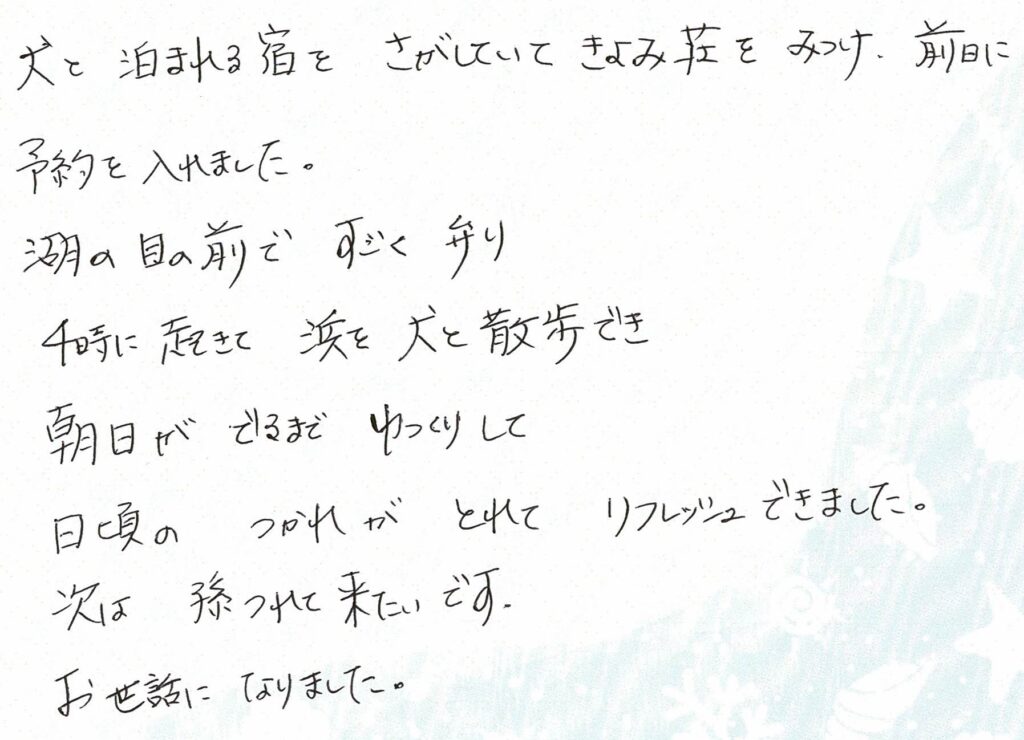 犬と 泊まれる宿を さがしていて きよみ荘を みつけ. 前日に
予約を 入れました。
湖の 目の前で すごく 弁り
4時に 起きて 浜を 犬と散歩でき
朝日が でるまで ゆっくりして
日頃の つかれが とれて リフレッシュできました。
次は 孫つれて来たいです.
お世話に なりました。